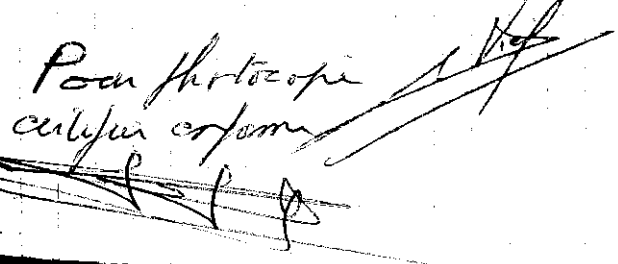 Pour photocopie
certifiée conforme